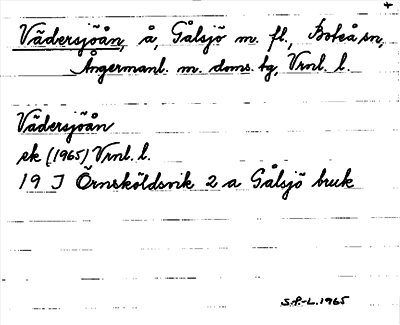 Vädersjöån, å, Gålsjö m. fl., Boteå sn,
Ångermanl. m. doms. hg, Vrnl. l.
Vädersjöån
ek (1965) Vrnl. l.
19 J Örnsköldsvik 2 a Gålsjö bruk
S.P.-L. 1965